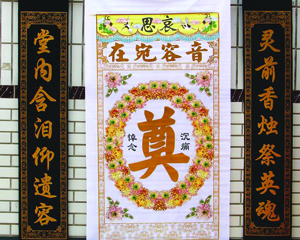 哀思
音容宛在
奠
沉痛
悼念
灵前香烛祭英魂
堂内含泪仰遗容